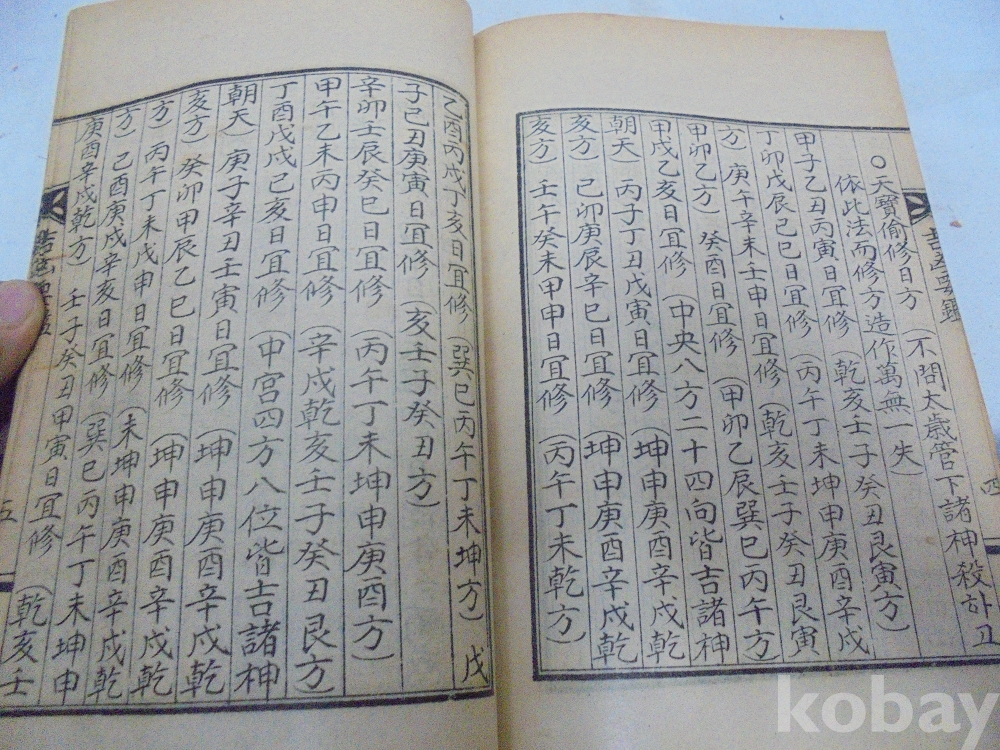 ○天寶偷修日方 (不問大歲管下諸神殺하고
依此法而修方造作萬無一失
甲子乙丑丙寅日宜修 (乾亥壬子癸丑艮寅方)
丁卯戊辰己巳日宜修 (丙午丁未坤申庚酉辛戌
方) 庚午辛未壬申日宜修 (乾亥壬子癸丑艮寅
甲卯乙方) 癸酉日宜修 (甲卯乙辰巽巳丙午方)
甲戌乙亥日宜修 (中央八方二十四向皆吉諸神
朝天) 丙子丁丑戊寅日宜修 (坤申庚酉辛戌乾
亥方) 己卯庚辰辛巳日宜修 (坤申庚酉辛戌乾
亥方) 壬午癸未甲申日宜修 (丙午丁未乾方)
四
乙酉丙戌丁亥日宜修 (巽巳丙午丁未坤方) 戊
子己丑庚寅日宜修 (亥壬子癸丑方)
辛卯壬辰癸巳日宜修 (丙午丁未坤申庚酉方)
甲午乙未丙申日宜修 (辛戌乾亥壬子癸丑艮方)
丁酉戊戌己亥日宜修 (中宮四方八位皆吉諸神
朝天) 庚子辛丑壬寅日宜修 (坤申庚酉辛戌乾
亥方) 癸卯甲辰乙巳日宜修 (坤申庚酉辛戌乾
方) 丙午丁未戊申日宜修 (未坤申庚酉辛戌乾
方) 己酉庚戌辛亥日宜修 (巽巳丙午丁未坤申
庚酉辛戌乾方) 壬子癸丑甲寅日宜修 (乾亥壬
五
kobay